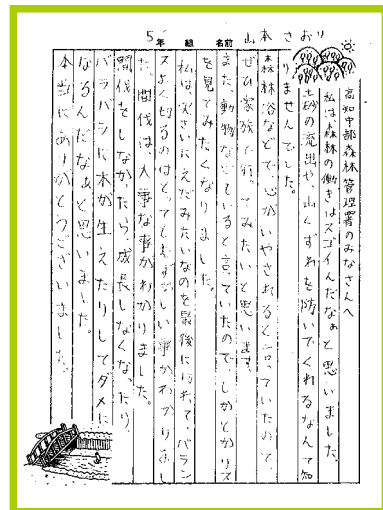 5年 組 名前 山本さおり
高知中部森林管理署のみなさんへ
私は森林の働きはスゴイんだなぁと思いました。
土砂の流出や、山くずれを防いでくれるなんて知
りませんでした。
森林浴などで心がいやされると言っていたので、
ぜひ家族で行ってみたいと思います。
また、動物などもいると言っていたので、しかとかリス
を見てみたくなりました。
私は実さいにえだみたいなのを最後に切れて、バラン
スよく切るのはとってもむずかしい事がわかりまし
た。間伐は、大事な事がわかりました。
間伐をしなかったら、成長しなくなったり、
バラバラに木が生えたりしてダメに
なるんだなぁと思いました。
本当にありがとうございました。